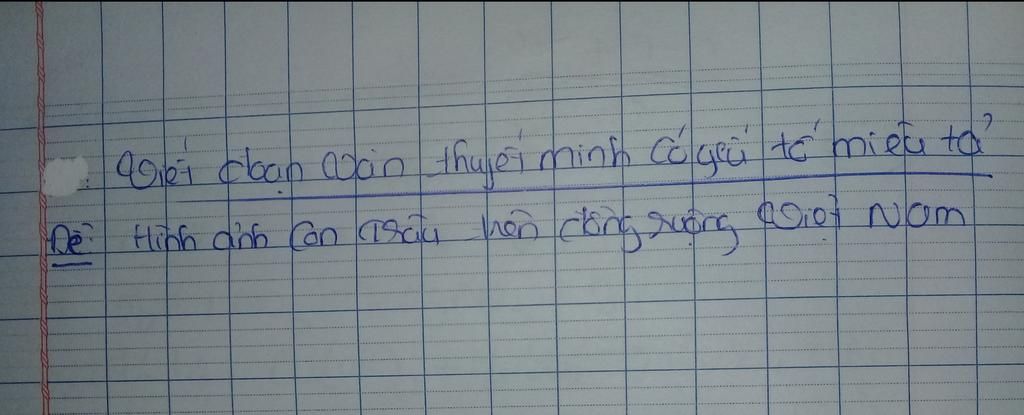 Viết đoạn văn thuyết minh có yếu tố miêu tả
Đề: Hình ảnh con trâu trên đồng ruộng Việt Nam